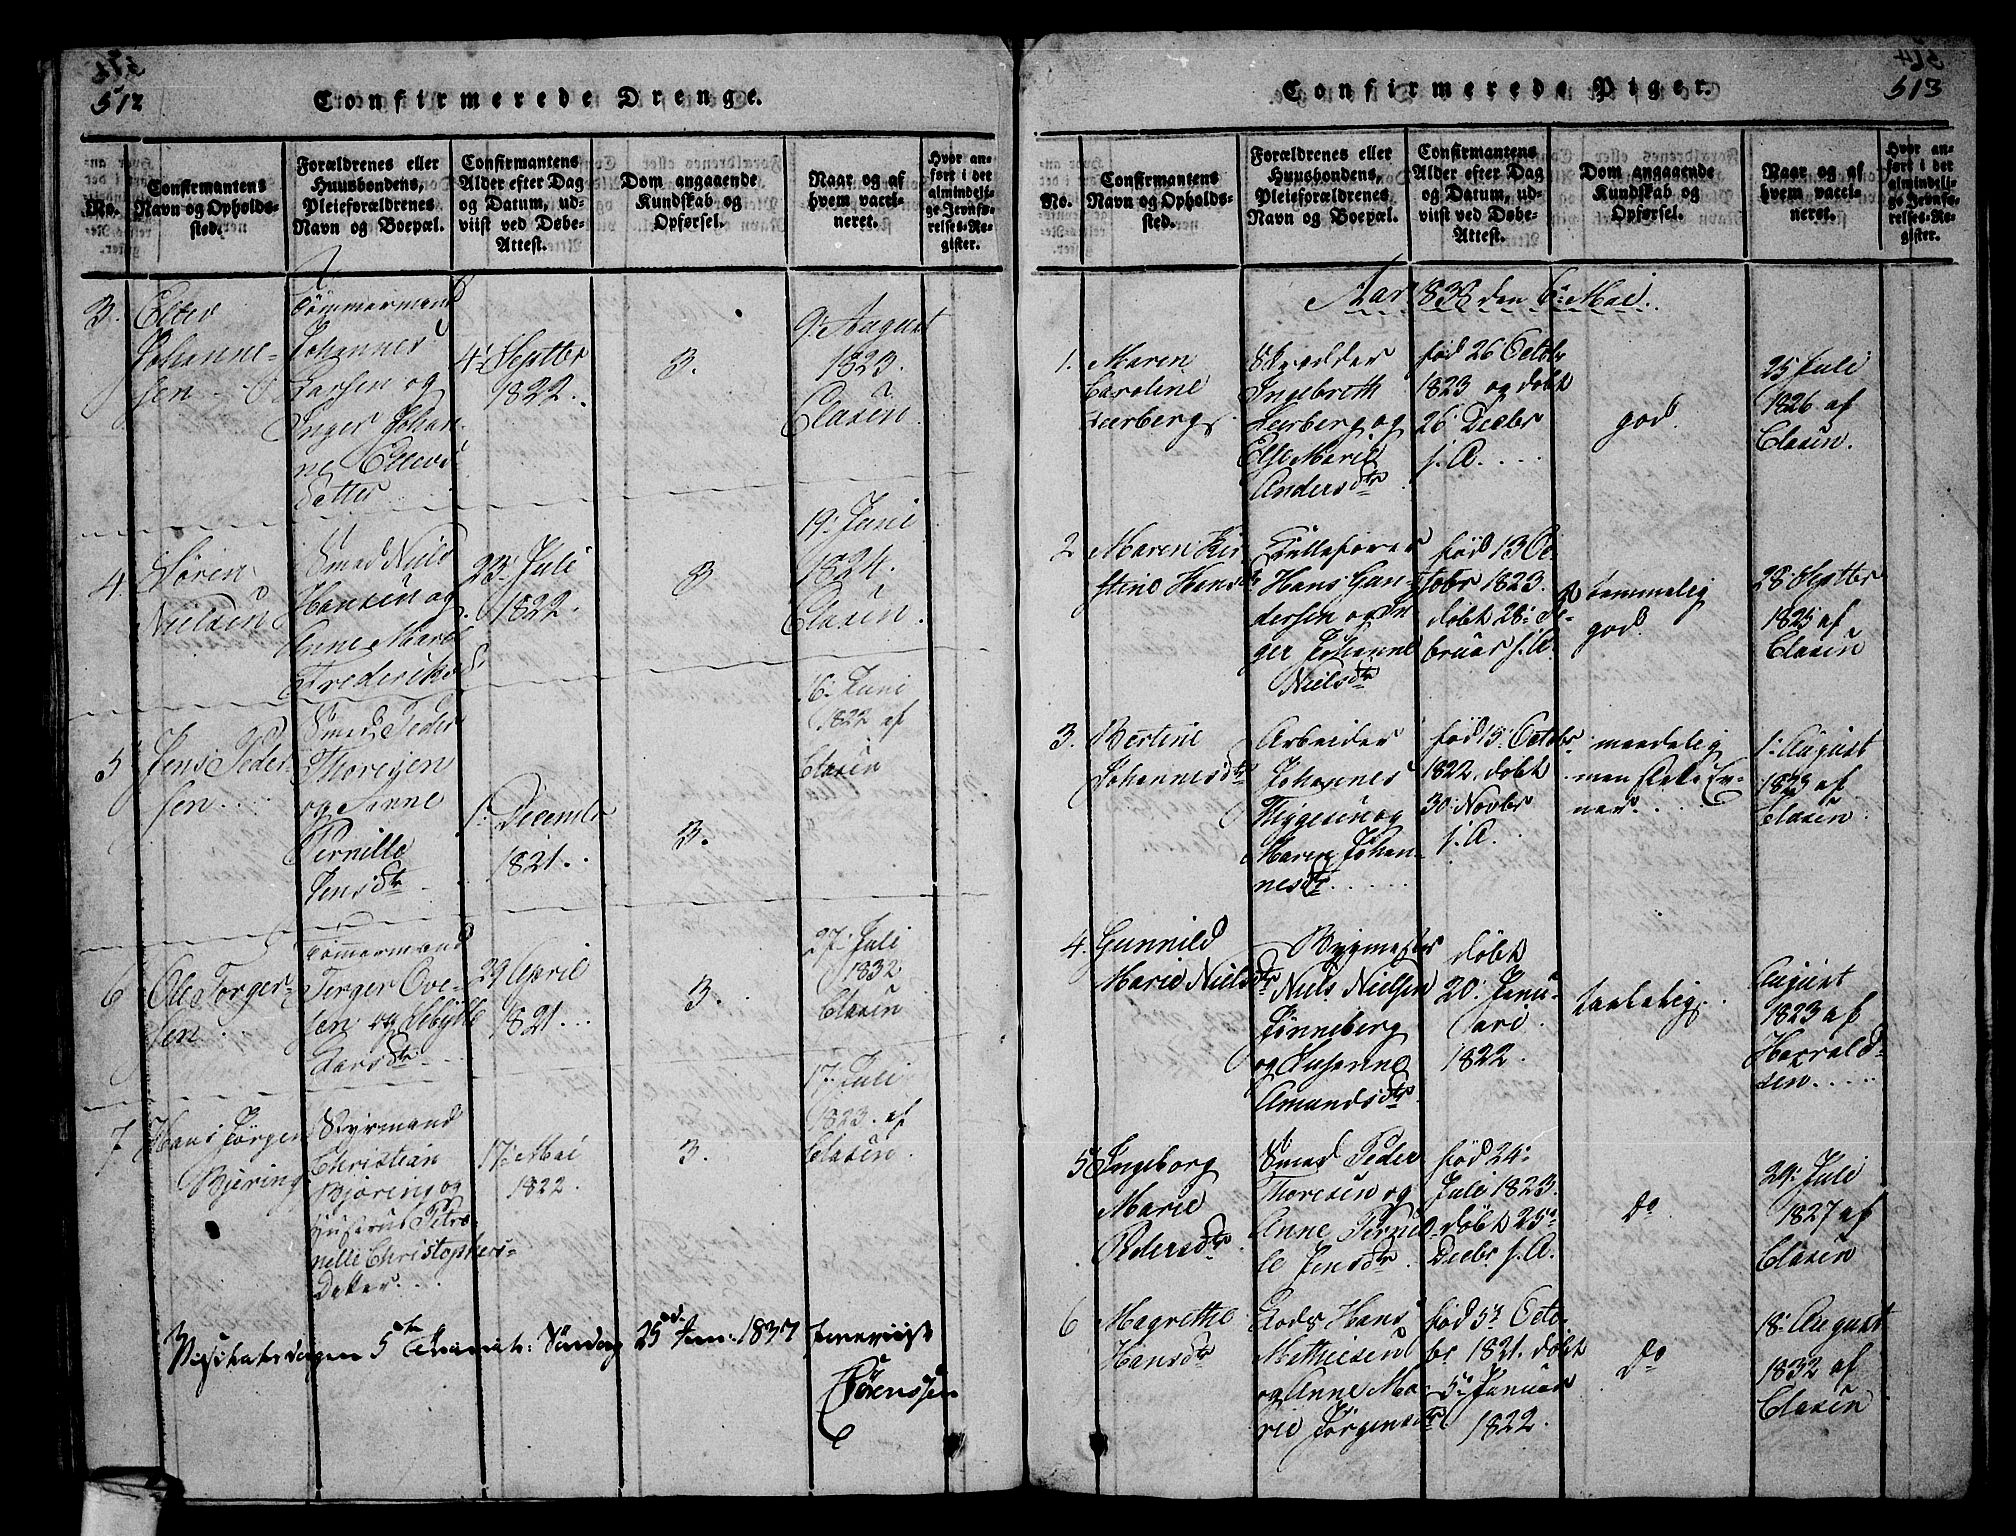 512
Confirmerede Drenge.
No.
Confirmantens
Navn og Opholds-
sted.
Forældrenes eller
Huusbondens,
Pleieforældrenes
Navn og Boepæl.
Confirmantens
Alder efter Dag
og Datum, ud-
viist ved Døbe-
Attest.
Dom angaaende
Kundskab og
Opførsel.
Naar og af
hvem vacci-
neret.
Hvor an-
ført i det
almindeli-
ge Jevnfø-
relses-Re-
gister.
3.
Johanne-
sen
Tømmermand
Johannes
Larsen og
Inger Johan-
ne Ellevs
Datter
4. Septbr
1822.
3.
9. August
1823.
Clasen
4
Søren
Nielsen
Smed Niels
Hansen og
Anne Marie
Frederiksd
23. Juli
1822.
3
19. Juni
1824.
Clasen.
5
Jens Peder-
sen
Smed Peder
Thoresen
og Anne
Pernille
Jensdtr
1. December
1821.
3.
6. Juni
1822 af
Clasen
6
Ole Torger-
sen
Tømmermand
Torger Ove-
sen og Sibylle
Larsdtr
29 April
1821...
3.
27. Juli
1832
Clasen
7
Hans Jörgen
Bjering
Styrmand
Christian
Björing og
Hustrue Petro-
nelle Christophers-
Datter...
17. Mai
1822.
3.
17. Juli
1823. af
Clasen.
Visitatsdagen 5te Trinit: Söndag 25d Jun: 1837
Sörenssen
513
Confirmerede Piger.
No.
Confirmantens
Navn og Opholds-
sted.
Forældrenes eller
Huusbondens,
Pleieforældrenes
Navn og Boepæl.
Confirmantens
Alder efter Dag
og Datum, ud-
viist ved Døbe-
Attest.
Dom angaaende
Kundskab og
Opførsel.
Naar og af
hvem vacci-
neret.
Hvor an-
ført i det
almindeli-
ge Jevnfø-
relses-Re-
gister.
Aar 1838 den 6. Mai.
1.
Maren
Caroline
Leerberg
Skrædder
Ingebreth
Leerberg og
Else Marie
Andersdtr
fød 26 Octobr
1823 og döbt
26 Decbr
s. A....
god.
25 Juli
1826 af
Clasen.
2
Maren Kir-
stine Hansdtr
Hans Gun-
dersen og In-
ger Johanne
Nielsdtr
fød 13 Oc-
tobr 1823.
döbt 28. Fe-
bruar s. A.
temmelig
god.
28. Septbr
1825 af
Clasen
3.
Bertine
Johannesdtr
Arbeider
Johannes
Tiggesen og
Maren Johan-
nesdtr.....
fød 15. Octobr
1822. döbt
30. Novbr
s. A.
maadelig
men flere Ev-
ner....
1. August
1823 af
Clasen.
4.
Gunnild
Marie Nielsdtr
Bygmester
Niels Nielsen
Fönneberg
og
Amundsdtr
döbt
20. Janu-
ari
1822.
taalelig.
August
1823 af
Harrald-
sen....
5
Ingeborg
Marie
Pedersdtr
Smed Peder
Thoresen og
Anne Pernil-
le Jensdtr.
fød 24.
Juli 1823.
döbt 25.
Decbr s. A.
Do
24. Juli
1827 af
Clasen
6
Magrethe
Hansdtr
Lods Hans
Mathiesen
og Anne Ma-
rie Jörgensdtr
fød 5. Octo-
br 1821. döbt
5. Januar
1822.
Do
18. August
1832 af
Clasen